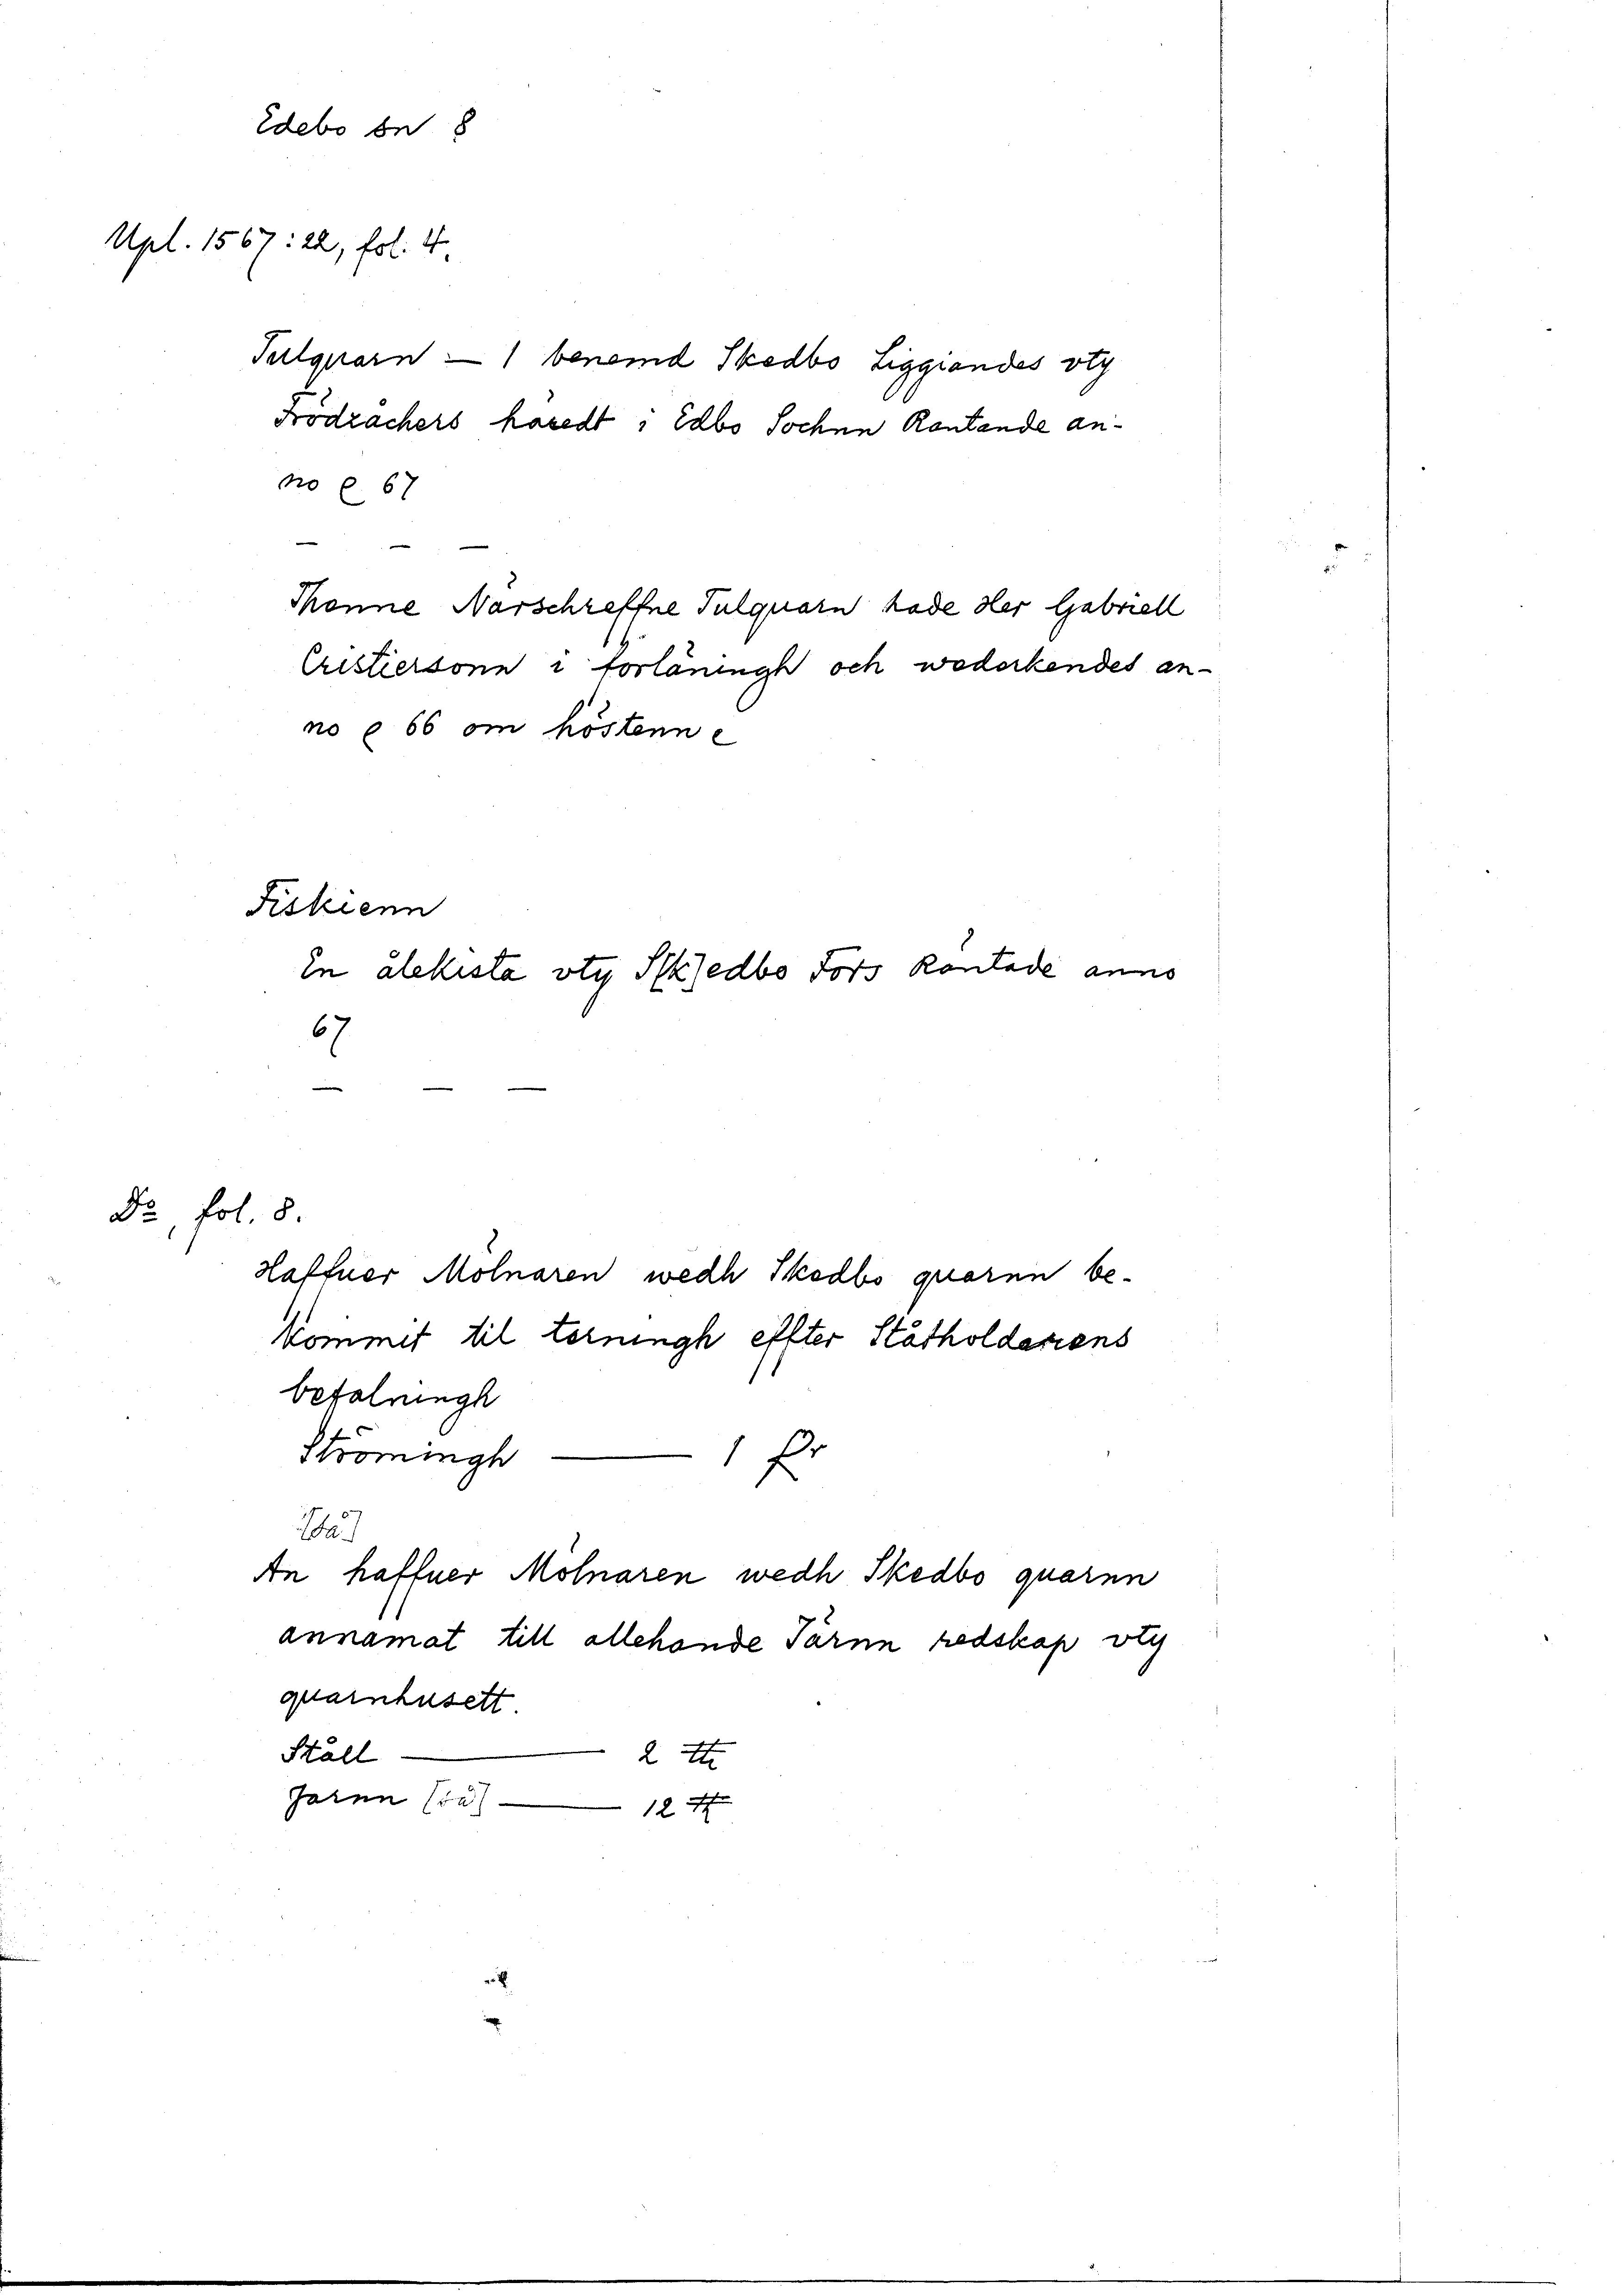 Edebo sn 8
Upl. 1567:22, fol. 4.
Tulquarn — 1 benemd Skedbo Liggiandes vty
Frödzåchers häredt i Edbo Sochnn Rantande an-
no e 67
— — —
Thenne Närschreffne Tulquarn hade Her Gabriell
Cristiersonn i förläningh och wederkendes an-
no e 66 om höstenn e
Fiskienn
En ålekista vty S[k]edbo Fors Räntade anno
67
— — —
Do, fol. 8.
Haffuer Mölnaren wedh Skedbo quarnn be-
kommit til tärningh effter Ståtholdarens
befalningh
Strömingh — 1 fr
[så]
An haffuer Mölnaren wedh Skedbo quarnn
annamat till allehande Järnn redskap vty
quarnhusett.
Ställ — 2 tt
Jarnn [så] — 12 tt